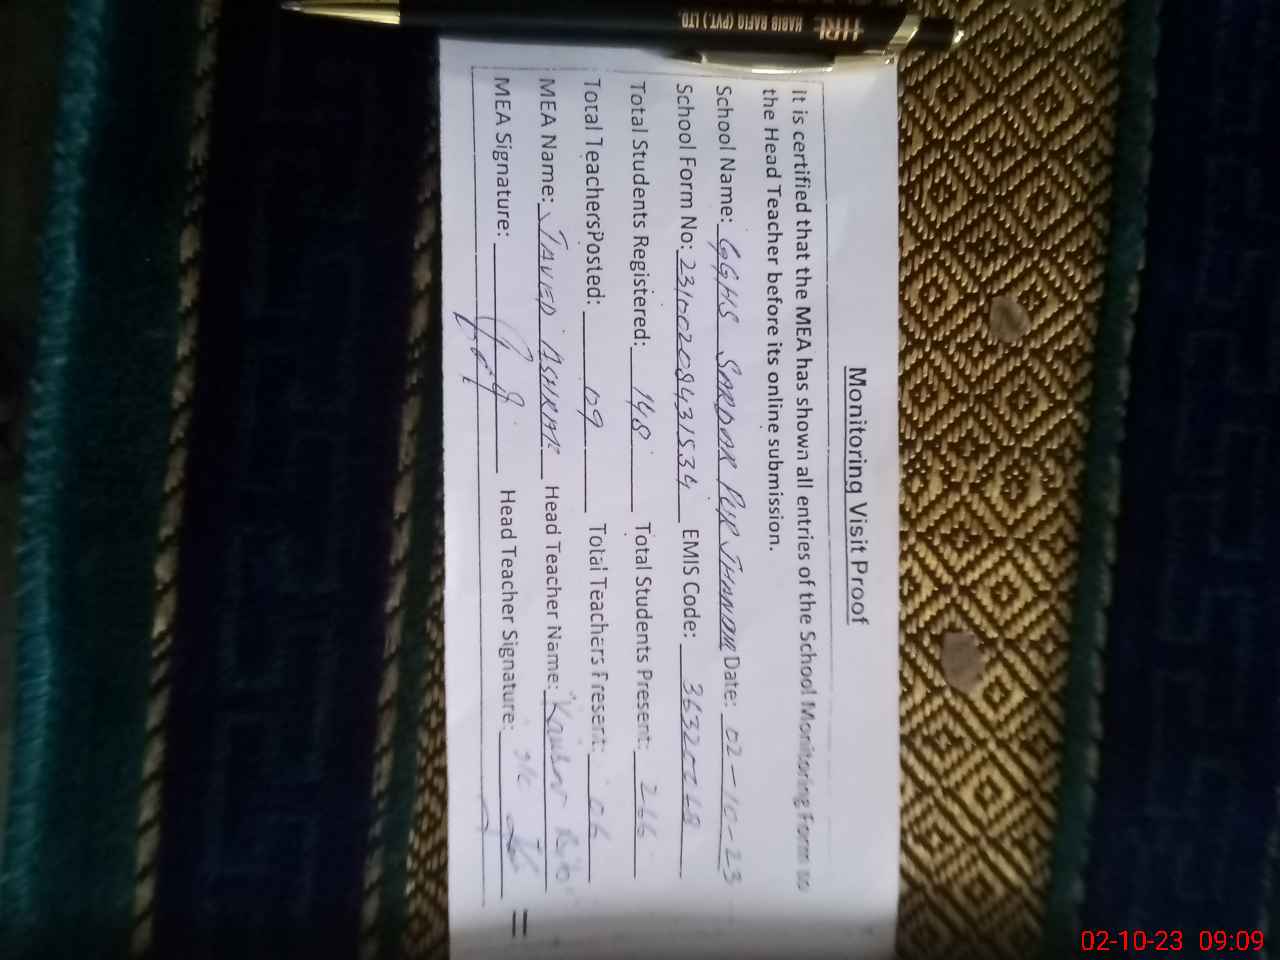 HRL HABIB RAFIQ (PVT.) LTD.
Monitoring Visit Proof
It is certified that the MEA has shown all entries of the School Monitoring Form to
the Head Teacher before its online submission.
School Name: GGHS SARDAR PUR JHANDIR Date: 02-10-23
School Form No: EMIS Code:
Total Students Registered: 148 Total Students Present:
Total TeachersPosted: 09 Total Teachers Present: 06
MEA Name: JAVED ASHRAF Head Teacher Name:
MEA Signature: Head Teacher Signature:
02-10-23 09:09